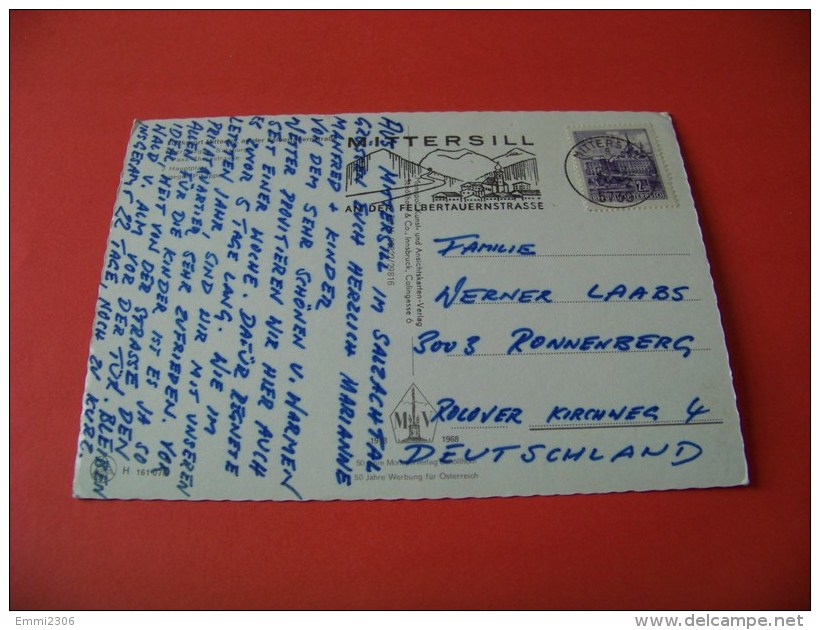 AUS MITTERSILL IM SALZACHTAL
GRÜSSEN EUCH HERZLICH MARIANNE
MANFRED + KINDER.
VON DEM SEHR SCHÖNEN U. WARMEN
WETTER PROFITIEREN WIR HIER AUCH
SEIT EINER WOCHE. DAFÜR REGNETE
ES VORHER 5 TAGE LANG. WIE IM
LETZTEN JAHR, SIND WIR MIT UNSEREN
PRIVATQUARTIER SEHR ZUFRIEDEN. VOR
ALLEN FÜR DIE KINDER IST ES JA SO
IDEAL. WEIT VON DER STRASSE DEN
WALD U. ALM VOR DER TÜR. BLEIBEN
INSGESAMT 22 TAGE, NOCH ZU KURZ.
MITTERSILL
AN DER FELBERTAUERNSTRASSE
MITTERSILL
FAMILIE
WERNER LAABS
3003 RONNENBERG
ROLOVER KIRCHWEG 4
DEUTSCHLAND
Kunst- und Ansichtskarten-Verlag
& Co., Innsbruck, Colingasse 6
M V
1918 1968
50 Jahre
50 Jahre Werbung für Österreich
H 161
Emmi2306
www.delcampe.net